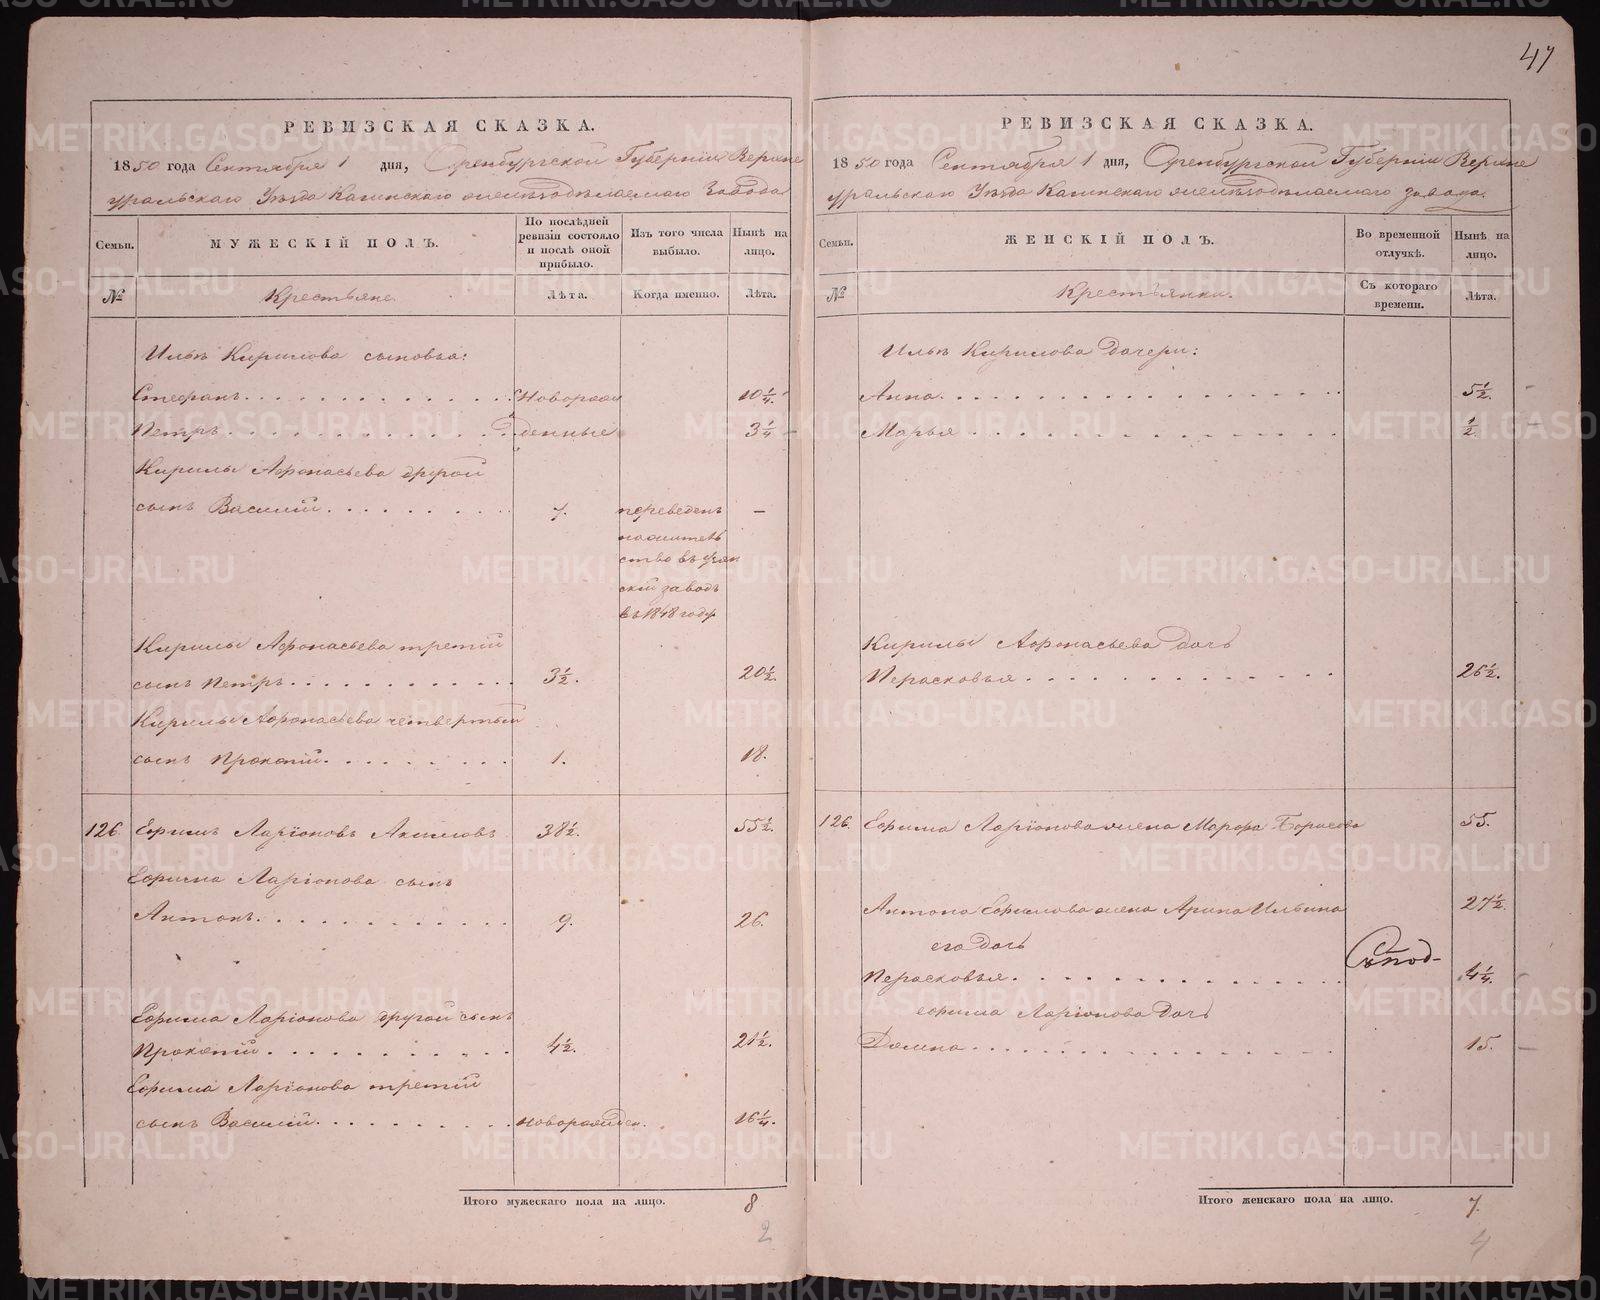 47
РЕВИЗСКАЯ СКАЗКА.
1850 года Сентября 1 дня, Оренбургской Губернiи Верхне
уральскаго Уѣзда Кагинскаго желѣзодѣлаемаго Завода
Семьи. МУЖЕСКІЙ ПОЛЪ. По послѣдней ревизіи состояло и послѣ оной прибыло. Изъ того числа выбыло. Нынѣ на лицо.
№ Крестьяне. Лѣта. Когда именно. Лѣта.
Ильи Кирилова сыновья:
Стефанъ. Новорож 10¼.
Петръ. денные 3¼
Кирилы Афонасьева другой
сынъ Василiй. 7. переведенъ —
на жител
ство въ
скiй заводъ
въ 1848 году
Кирилы Афонасьева третiй
сынъ Петръ. 3½. 20½.
Кирилы Афонасьева четвертый
сынъ Прокопiй. 1. 18.
126. Ефимъ Ларiоновъ Акимовъ 38½. 55½.
Ефима Ларiонова сынъ
Антонъ. 9. 26.
Ефима Ларiонова другой сынъ
Прокопiй 4½. 21½.
Ефима Ларiонова третiй
сынъ Василiй. новорожден. 16¼.
Итого мужескаго пола на лицо. 8
2
РЕВИЗСКАЯ СКАЗКА.
1850 года Сентября 1 дня, Оренбургской Губернiи Верхне
уральскаго Уѣзда Кагинскаго желѣзодѣлаемаго завода.
Семьи. ЖЕНСКІЙ ПОЛЪ. Во временной отлучкѣ. Нынѣ на лицо.
№ Крестьянки. Съ котораго времени. Лѣта.
Ильи Кирилова дочери:
Анна. 5½.
Марья ½.
Кирилы Афонасьева дочь
Персковья 26½.
126. Ефима Ларiонова жена Марфа Борисова 55.
Антона Ефимова жена Арина Ильина 27½.
его дочь
Персковья. Съ под- 4¼.
Ефима Ларiонова дочь
Домна 15.
Итого женскаго пола на лицо. 7.
4
METRIKI.GASO-URAL.RU